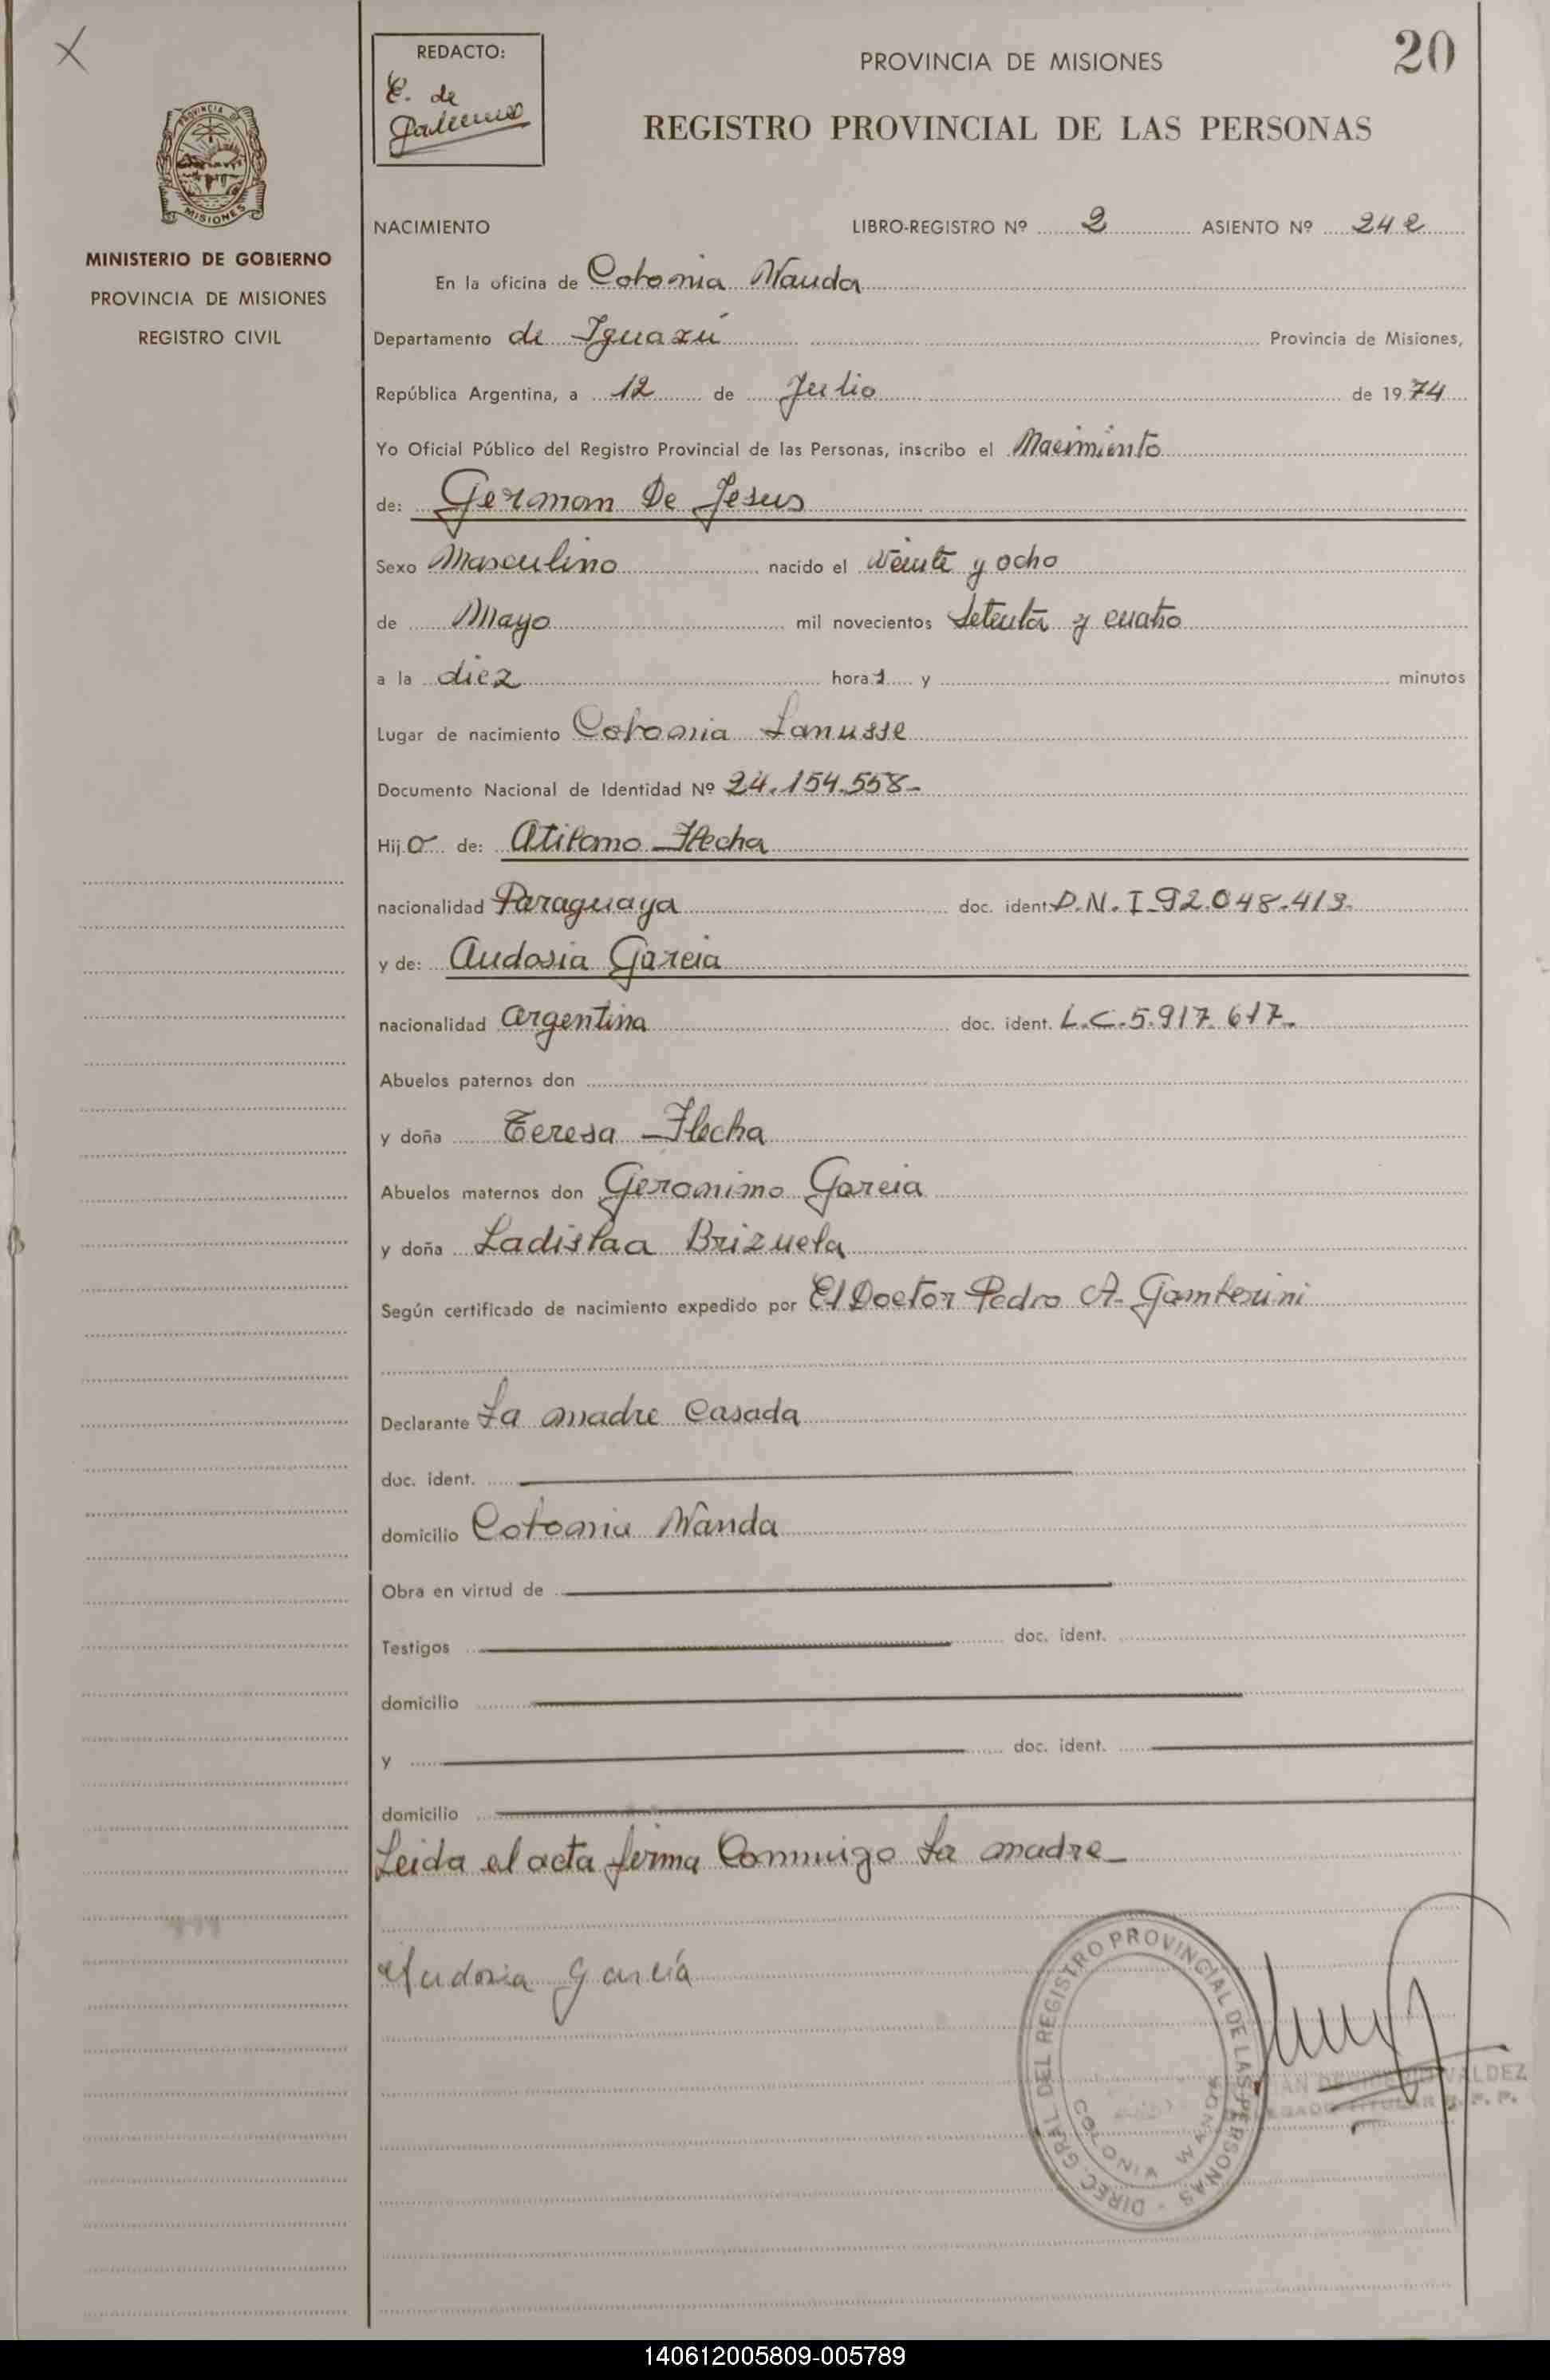 20
REDACTO:
E. de
PROVINCIA DE MISIONES
REGISTRO PROVINCIAL DE LAS PERSONAS
PROVINCIA DE
MISIONES
MINISTERIO DE GOBIERNO
PROVINCIA DE MISIONES
REGISTRO CIVIL
NACIMIENTO LIBRO-REGISTRO Nº 2 ASIENTO Nº 242
En la oficina de Colonia Wanda
Departamento de Iguazú Provincia de Misiones,
República Argentina, a 12 de Julio de 1974
Yo Oficial Público del Registro Provincial de las Personas, inscribo el Nacimiento
de: German De Jesus
Sexo Masculino nacido el Veinte y ocho
de Mayo mil novecientos Setenta y cuatro
a la diez hora s y minutos
Lugar de nacimiento Colonia Lanusse
Documento Nacional de Identidad Nº 24.154.558-
Hijo de: Atilano Flecha
nacionalidad Paraguaya doc. ident. D.N.I 92.048.413.
y de: Audosia Garcia
nacionalidad Argentina doc. ident. L.C. 5.917.617-
Abuelos paternos don
y doña Teresa Flecha
Abuelos maternos don Geronimo Garcia
y doña Ladislaa Brizuela
Según certificado de nacimiento expedido por El Doctor Pedro A. Gamberini
Declarante La madre Casada
doc. ident.
domicilio Colonia Wanda
Obra en virtud de
Testigos doc. ident.
domicilio
y doc. ident.
domicilio
Leida el acta firma Conmigo La madre
Audosia García
DIREC. GRAL DEL REGISTRO PROVINCIAL DE LAS PERSONAS -
COLONIA WANDA
VALDEZ
TITULAR R. P. P.
140612005809-005789